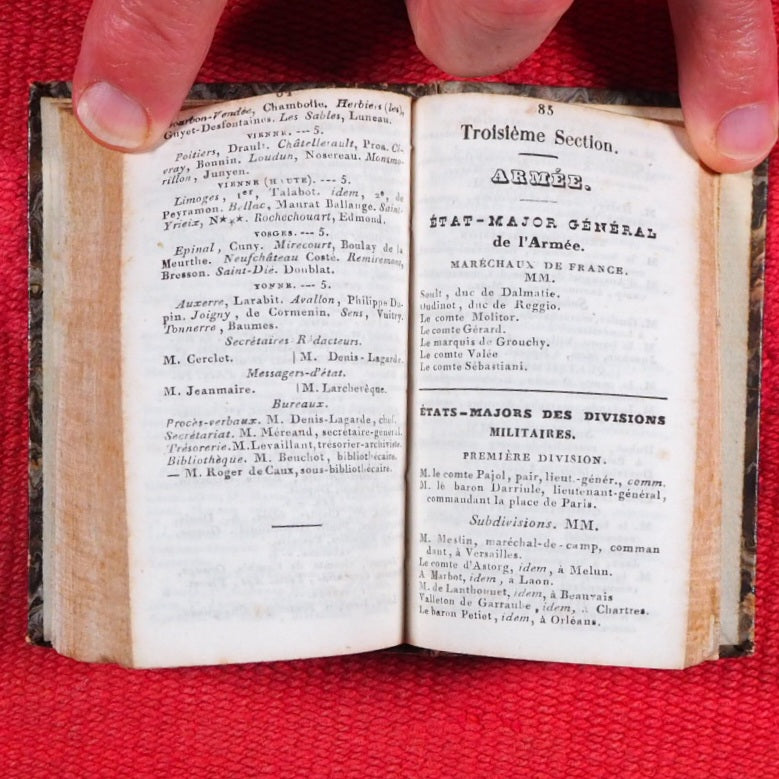 84
Bourbon-Vendée, Chambolle, Herbiers (les),
Guyet-Desfontaines. Les Sables, Luneau.
VIENNE. --- 5.
Poitiers, Drault. Châtellerault, Proa. Ci-
vray, Bonnin. Loudun, Nosereau. Montmo-
rillon, Junyen.
VIENNE (HAUTE). --- 5.
Limoges, 1er, Talabot. idem, 2e, de
Peyramon. Bellac, Maurat Ballange. Saint-
Yrieix, N*⁎*. Rochechouart, Edmond.
VOSGES. --- 5.
Epinal, Cuny. Mirecourt, Boulay de la
Meurthe. Neufchâteau Costé. Remiremont,
Bresson. Saint-Dié. Doublat.
YONNE. --- 5.
Auxerre, Larabit. Avallon, Philippe Du-
pin. Joigny, de Cormenin. Sens, Vuitry.
Tonnerre, Baumes.
Secrétaires Rédacteurs.
M. Cerclet. | M. Denis-Lagarde.
Messagers-d'état.
M. Jeanmaire. | M. Larchevêque.
Bureaux.
Procès-verbaux. M. Denis-Lagarde, chef.
Secrétariat. M. Méreand, secrétaire-général.
Trésorerie. M. Levaillant, trésorier-archiviste.
Bibliothèque. M. Beuchot, bibliothécaire.
— M. Roger de Caux, sous-bibliothécaire.
85
Troisième Section.
ARMÉE.
ÉTAT-MAJOR GÉNÉRAL
de l'Armée.
MARÉCHAUX DE FRANCE.
MM.
Soult, duc de Dalmatie.
Oudinot, duc de Reggio.
Le comte Molitor.
Le comte Gérard.
Le marquis de Grouchy.
Le comte Valée
Le comte Sébastiani.
ÉTATS-MAJORS DES DIVISIONS
MILITAIRES.
PREMIÈRE DIVISION.
M. le comte Pajol, pair, lieut.-génér., comm.
M. le baron Darriule, lieutenant-général,
commandant la place de Paris.
Subdivisions. MM.
M. Meslin, maréchal-de-camp, comman
dant, à Versailles.
Le comte d'Astorg, idem, à Melun.
A Marbot, idem, a Laon.
M. de Lanthonnet, idem, à Beauvais
Valleton de Garraube, idem, à Chartres.
Le baron Petiet, idem, à Orléans.